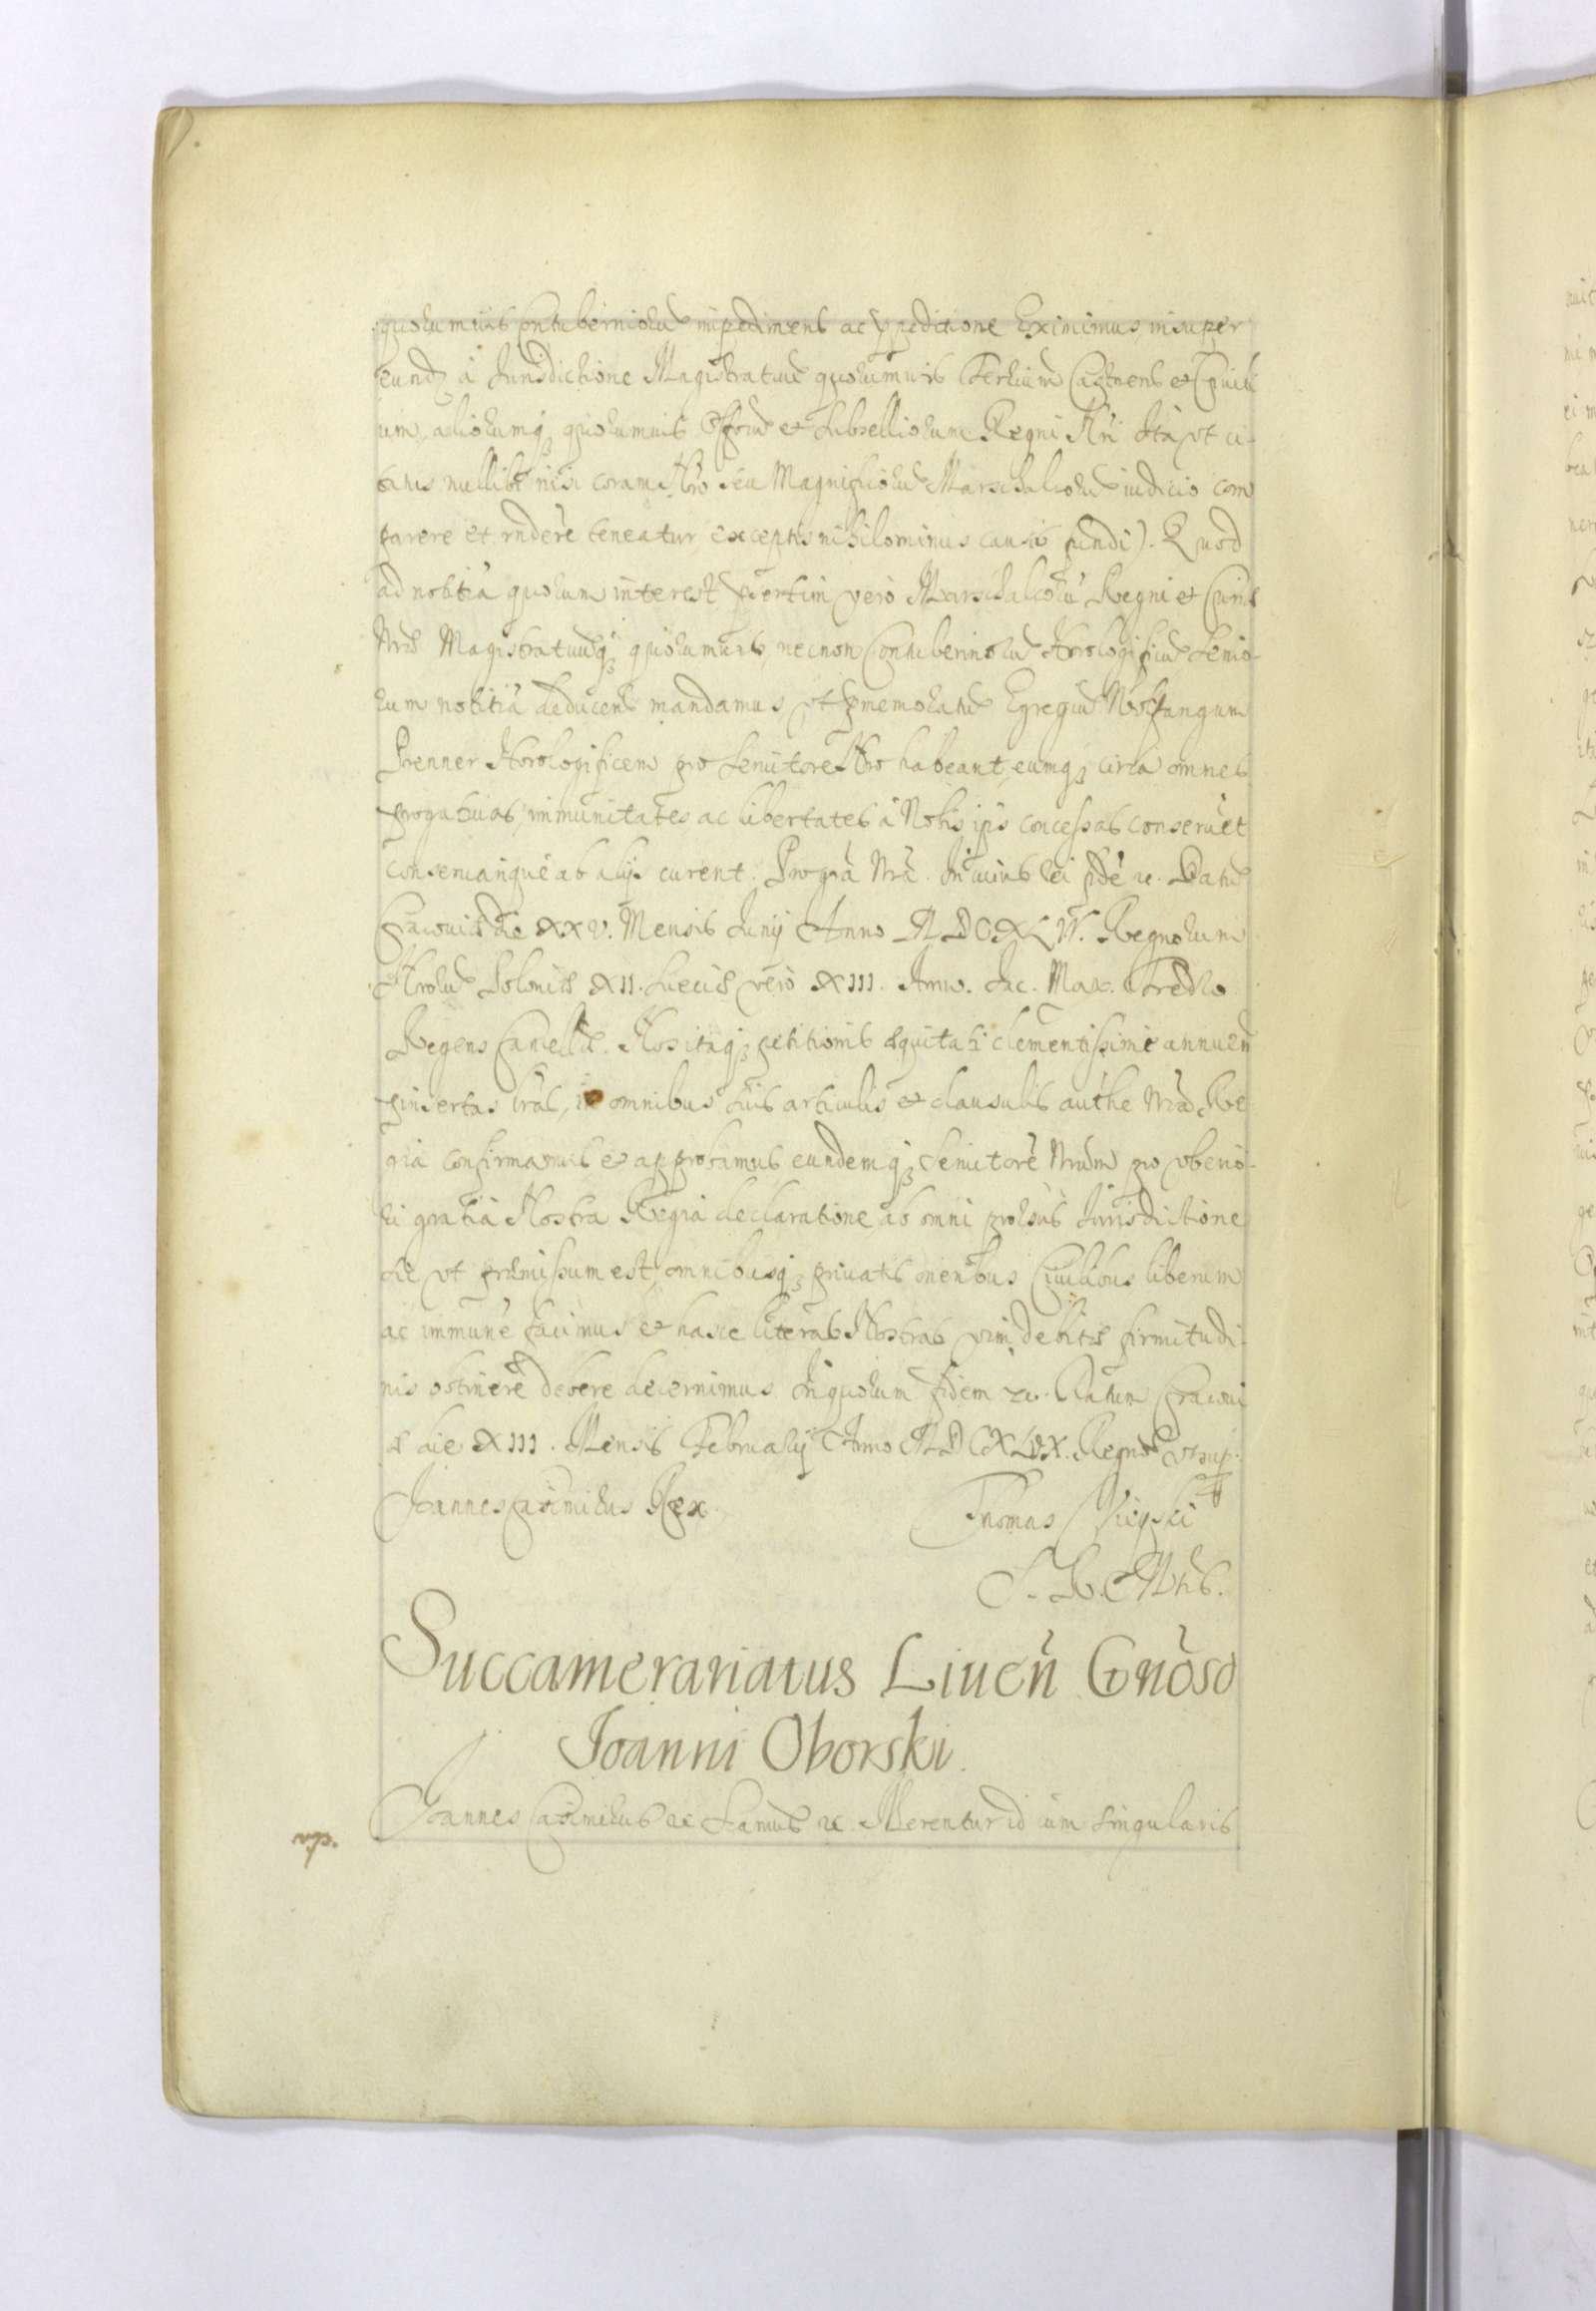 quorumvis Contuberniorũ impediment ac ppeditione Eximimus, insuper
eundẽ à Jurisdictione Magistratuũ quorumvis Terrium Castrens et Civili
um, aliorumq3 quorumvis Offorũ et Subselliorum Regni Nri Ita vt ci-
tatus nullibi nisi coram Nro seu Magnificorũ Marschalcorũ iudicio com
parere et rndere teneatur, exceptis nihilominus causis fundi). Quod
ad notitiã quorum interest psertim verò Marschalcorũ Regni et Curiæ
Nræ Magistratuumq3 quorumvis, necnon Contuberniorũ Horologificũ Senio-
rum notitiã deducens mandamus, vt pmemoratũ Egregiũ Wolfgangum
Prenner Horologificem pro Servitore Nro habeant, eumq3 circa omnes
progatiuas, immunitates ac libertates à Nobis ipsi concessas conseruẽt
conseruarique ab alijs curent. Pro grã Nrã. In cuius rei fidẽ &c. Datũ
Cracouiæ die XXV. Mensis Junij Anno MDCXLIV. Regnorum
Nrorũ Poloniæ XII. Sueciæ verò XIII. Anno. Jac. Max. Fredro
Regens Cancellæ. Nos itaq3 petitionis æquitati clementissime annuen
pinsertas lras, in omnibus suis articulis et clausulis authẽ Nrã Re
gia confirmamus et approbamus eundemq3 Seruitorẽ Nrum pro vberio-
ri gratiã Nostra Regiã declaratione, ab omni prorsus Jurisdictione
sic vt præmissum est, omnibusq3 priuatis oneribus Ciuilibus liberum
ac immunẽ facimus et hasce literas Nostras vim debitæ firmitudi-
nis obtinere debere decernimus. In quorum fidem &c. Datum Cracoui
æ die XIII. Mensis Februarij Anno MDCXLIX. Regnoꝝ vt sup.
Joannes Casimirus Rex. Thomas Uieyski
S. R. Mtis.
Succamerariatus Liuen̄ Gnoso
Joanni Oborski
Joannes Casimirus &c Signamus &c. Merentur id cum singularis